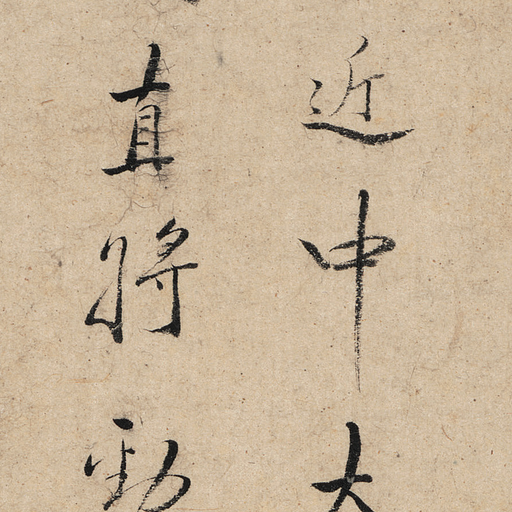 近中大
直將勁